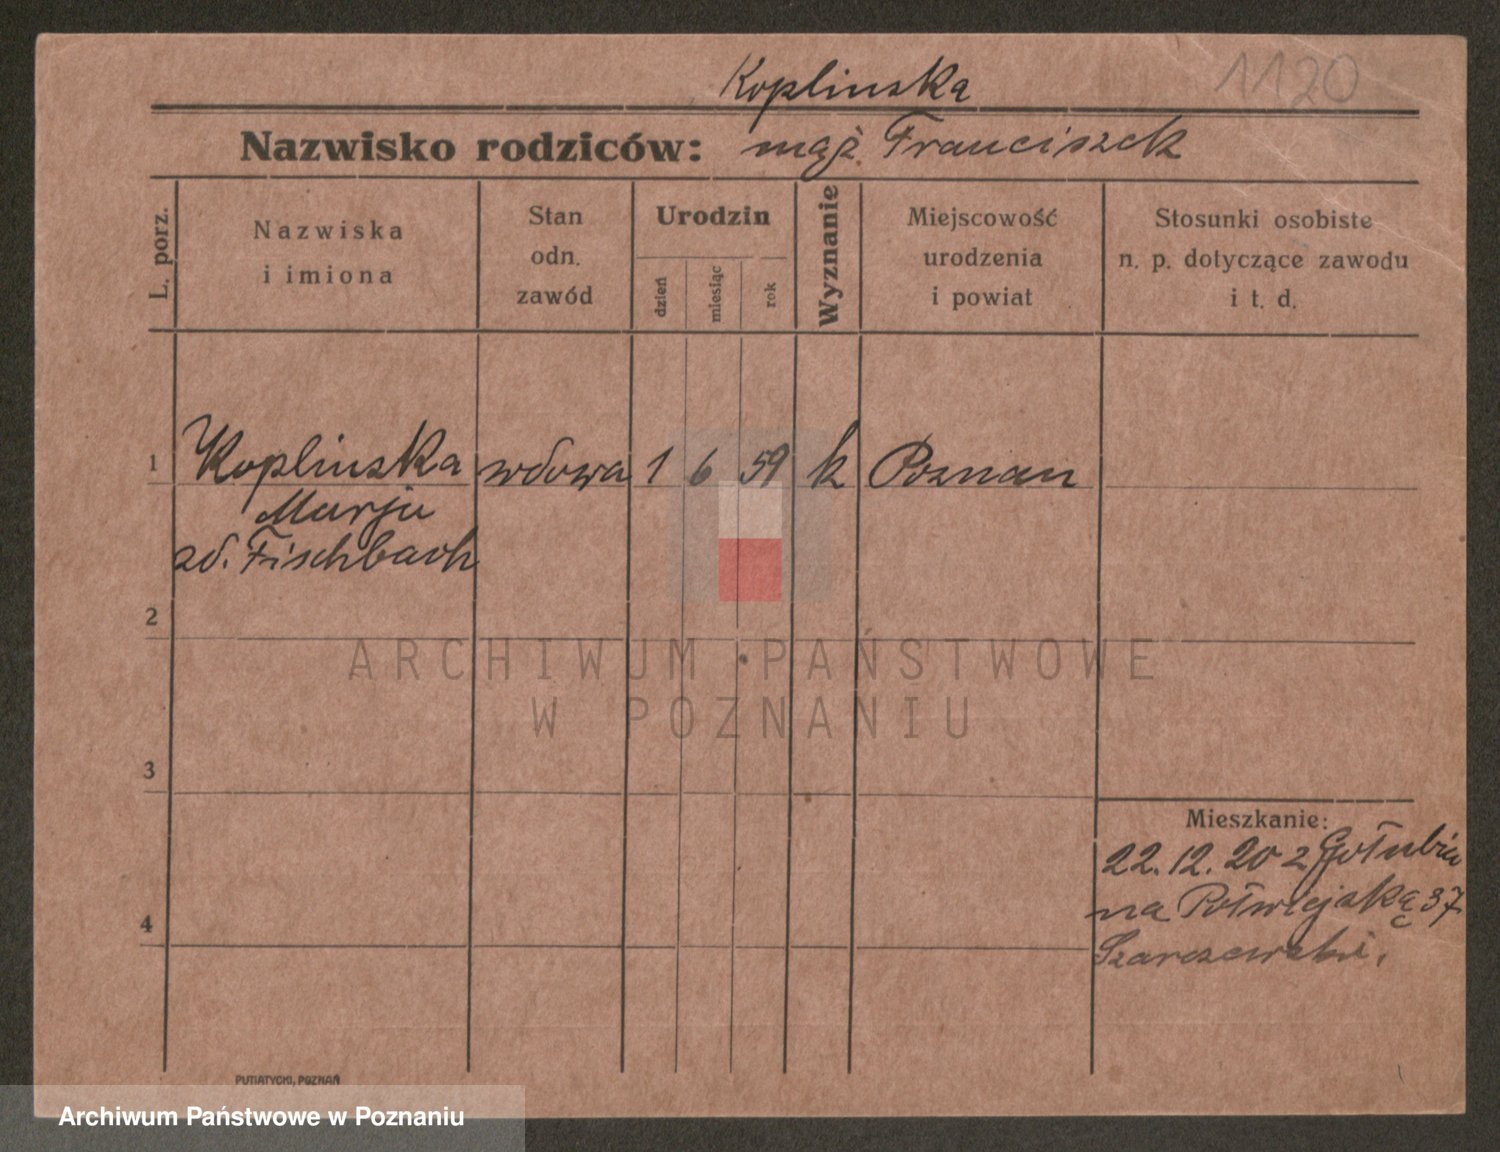 Koplinska
1120
Nazwisko rodziców: mąż Franciszek
L. porz.
Nazwiska
i imiona
Stan
odn.
zawód
Urodzin
dzień
miesiąc
rok
Wyznanie
Miejscowość
urodzenia
i powiat
Stosunki osobiste
n. p. dotyczące zawodu
i t. d.
1 Koplinska wdowa 1 6 59 k Poznan
Marja
zd. Fischbach
2
ARCHIWUM PAŃSTWOWE
W POZNANIU
3
Mieszkanie:
22.12.20 z Gołubia
na Półwiejską 37
4
Szarszewski.
PUTIATYCKI, POZNAŃ
Archiwum Państwowe w Poznaniu